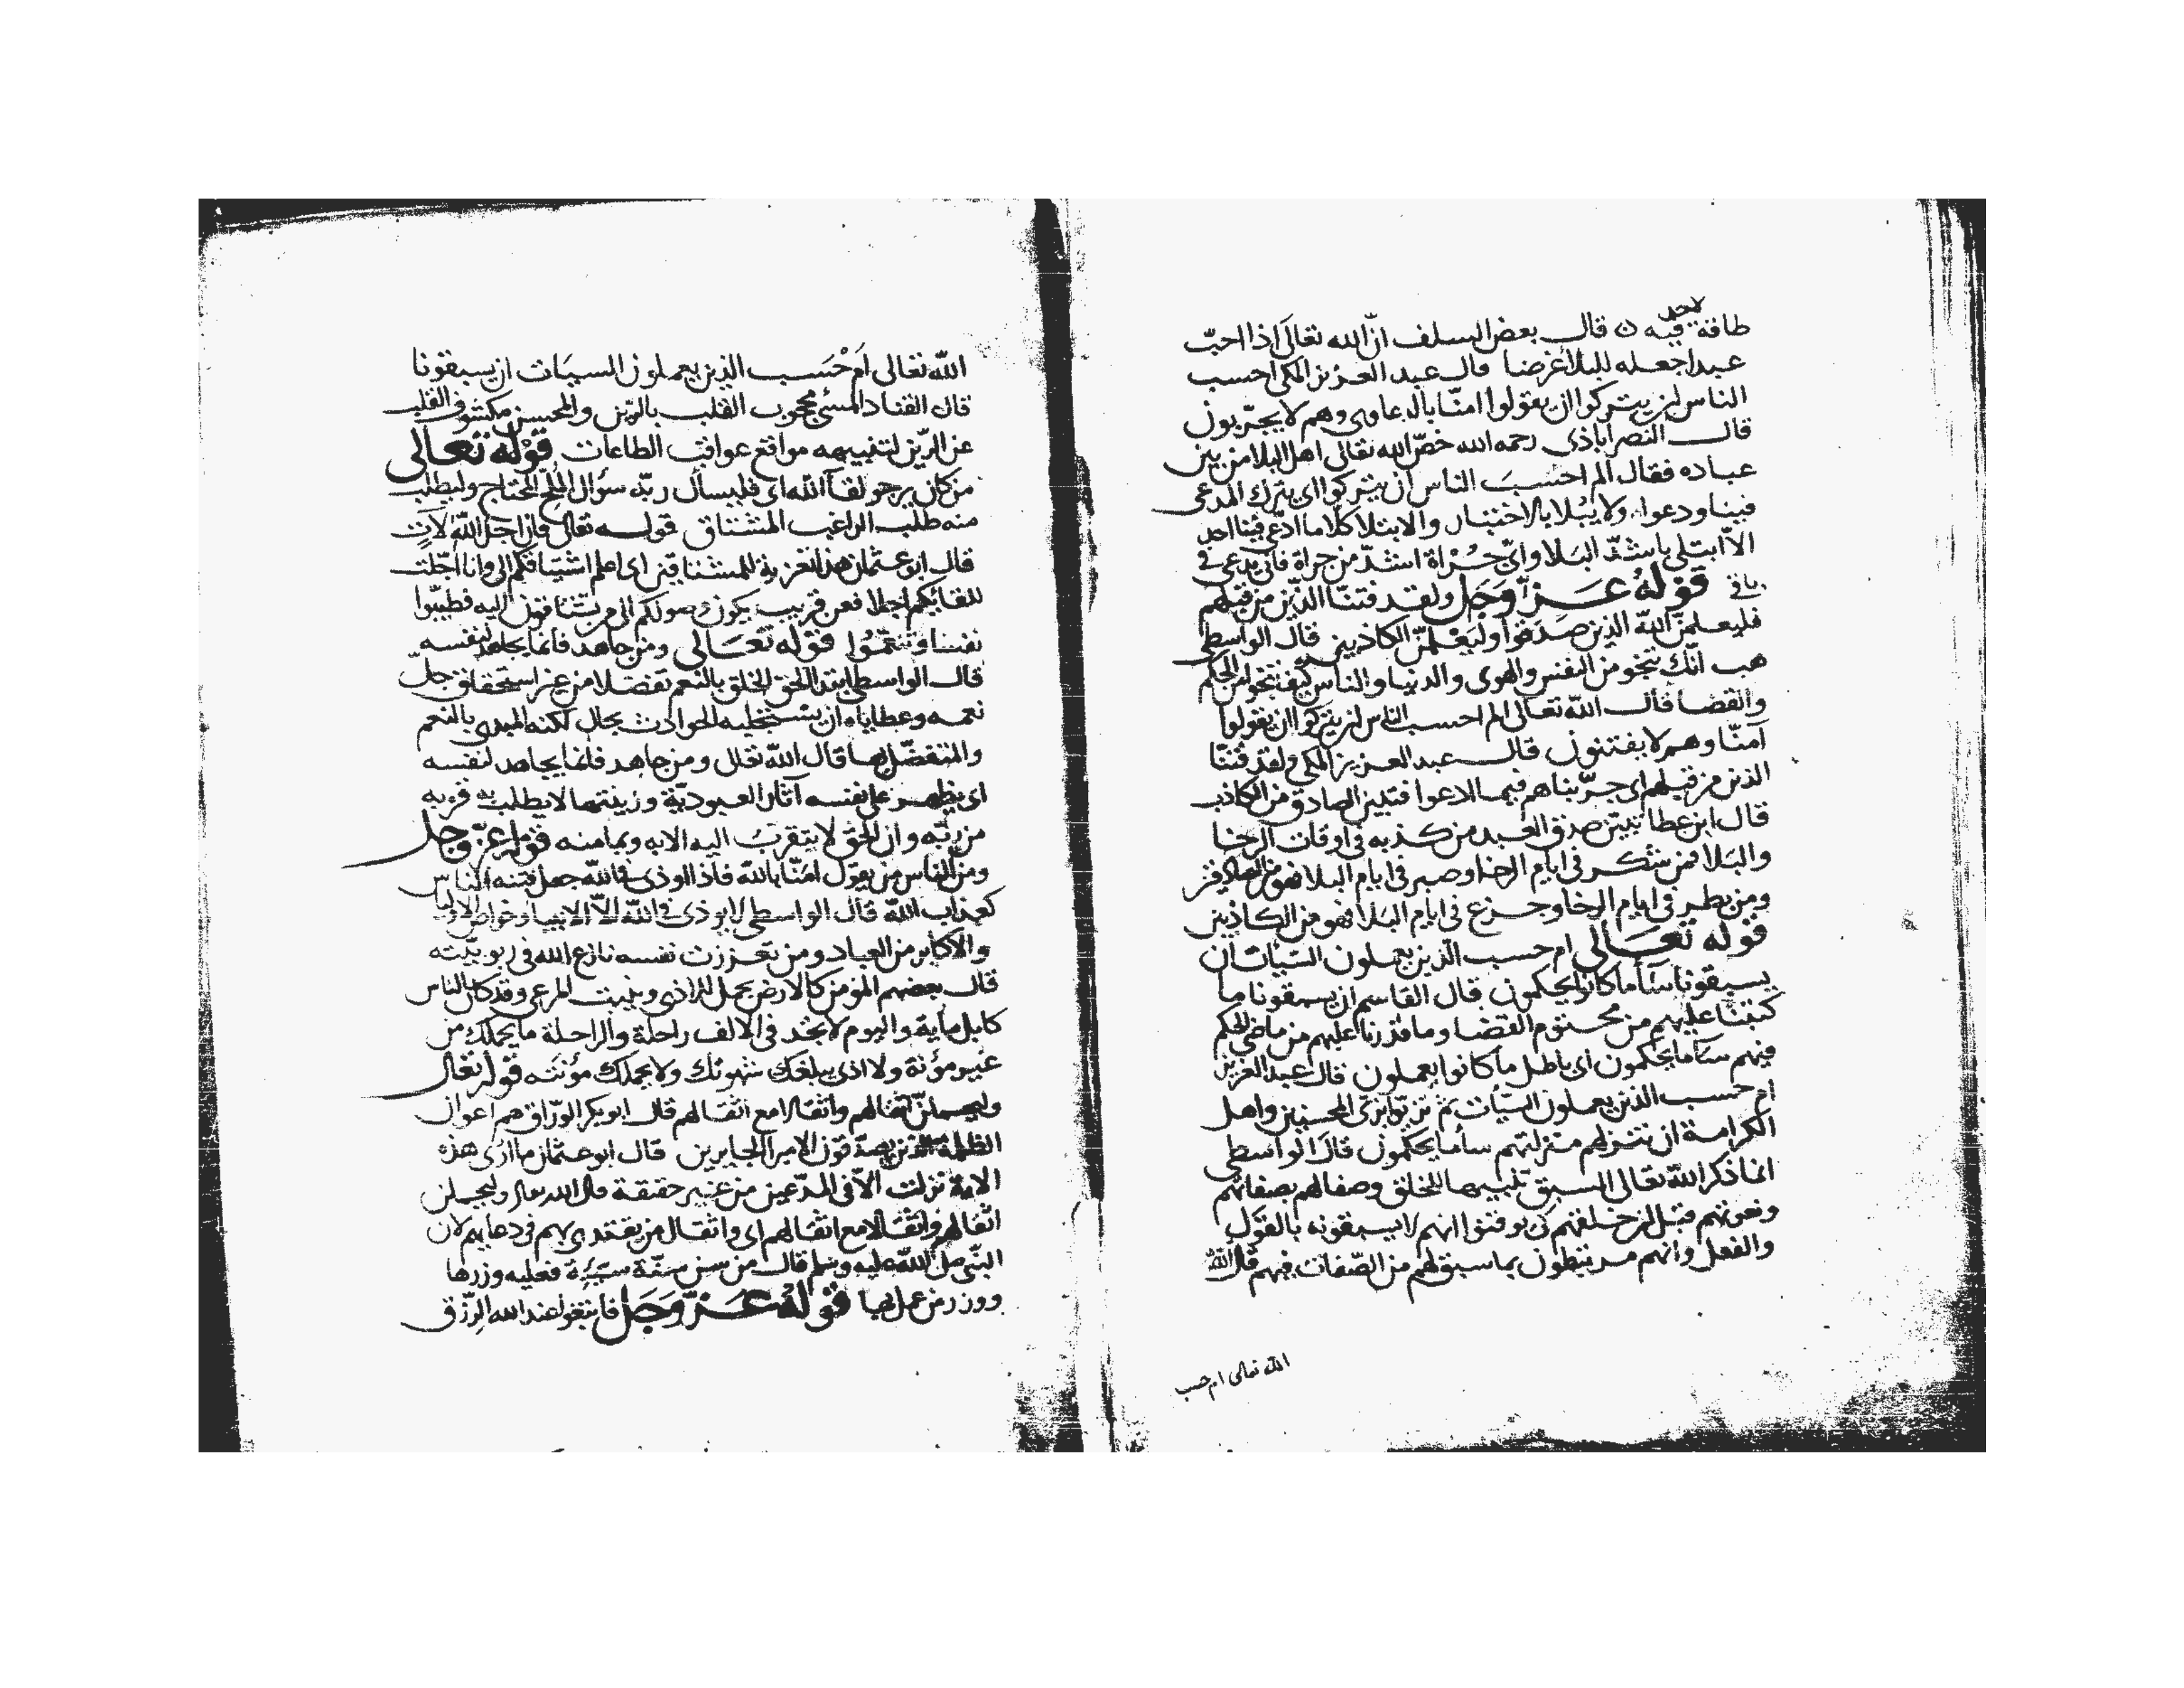 طاقة لاحد فيه ن قال بعض السلف انّ الله تعالى اذا احبّ
عبدا جعله للبلا غرضا قال عبد العزيز المكى احسب
الناس ان يتركوا ان يقولوا امنّا بالدعاوى وهم لا يجرّبون
قال النصراباذى رحمه الله خصّ الله تعالى اهل البلا من بين
عباده فقال الم احسب الناس ان يتركوا اى يترك المدعى
فينا ودعواه ولا يُبلا بالاختبار والابتلا كلا ما ادّعى فينا احد
الا ابتلى باشدّ البلا واىّ جُرْاة اشدّ من جراة فانى يدعى فى
باقى قوله عزّ وجل ولقد فتنّا الذين من قبلهم
فليعلمنّ الله الذين صدقوا وليعلمنّ الكاذبين قال الواسطى
هب انّك تنجو من النفس والهوى والدنيا والناس كيف تنجو من الحكم
والقضا قال الله تعالى الم احسب الناس ان يتركوا ان يقولوا
آمنّا وهم لا يفتنون قال عبد العزيز المكى ولقد فتنّا
الذين من قبلهم اى جرّبناهم فيما ادعوا فتبين الصادق من الكاذب
قال ابن عطا تبيّن صدق العبد من كذبه فى اوقات الرخا
والبلا فمن شكر فى ايام الرخا وصبر فى ايام البلا فهو من الصادقين
ومن بطر فى ايام الرخا وجزع فى ايام البلا فهو من الكاذبين
قوله تعالى ام حسب الذين يعملون السّيات ان
يسبقونا سآ ما كانوا يحكمون قال القاسم ان يسبقونا ما
كتبنا عليهم من محتوم القضا وما قدرنا عليهم من ماضى الحكم
فيهم سآ ما يحكمون اى باطل ما كانوا يعملون قال عبد العزيز
ام حسب الذين يعملون السيّات ثم تزيّوا بزىّ المحسنين واهل
الكرامة ان ننزلهم منزلتهم سآ ما يحكمون قال الواسطى
انما ذكر الله تعالى السبق تنبيها للخلق وصفا لهم بصفاتهم
ونعوتهم قبل ان خلقهم كى يوقنوا انهم لا يسبقونه بالقول
والفعل وانهم مرتبطون بما سبق لهم من الصّفات فيهم قال الله
الله تعالى ام حسب
الله تعالى ام حسب الذين يعملون السيات ان يسبقونا
قال القناد المسئ محجوب القلب بالرين والمحسن مكشوف القلب
عن الرّين لتنبيهه مواقع عواقب الطاعات قوله تعالى
من كان يرجو لقآ الله اى فليسال ربّه سؤال الملحّ المحتاج وليطلب
منه طلب الراغب المشتاق قوله تعالى فان اجل الله لآت
قال ابو عثمان هذا تعزية للمشتاقين اى اعلم اشتياقكم الى وانا اجّلت
للقائكم اجلا فعن قريب يكون وصولكم الى من تشتاقون اليه فطيّبوا
نفسا وتنعّموا قوله تعالى ومن جاهد فانما يجاهد لنفسه
قال الواسطى ابتدا الحق الخلق بالنعم تفضلا من غير استحقاق جلّ
نعمه وعطاياه ان يستجلبه الحوادث بحال لكنه المبدى بالنعم
والمتفضّل بها قال الله تعالى ومن جاهد فانما يجاهد لنفسه
اى يظهر على نفسه آثار العبوديّة وزينتها لا يطلب به قربه
من ربّه وان الحق لا يتقرب اليه الا به وبما منه قوله عزّ وجل
ومن الناس من يقول امنّا بالله فاذا اوذى فى الله جعل فتنة الناس
كعذاب الله قال الواسطى لا يوذى فى الله الاّ الانبيا وخواص الاوليا
والاكابر من العباد ومن تعززت نفسه نازع الله فى ربوبيّته
قال بعضهم المؤمن كالارض يحمل الاذى وينبت المرعى وقد كان الناس
كابل ماية واليوم لا تجد فى الالف راحلة والراحلة ما يحملك من
غير مؤنة ولا اذى يبلغك شهوتك ولا يحملك مؤنته قوله تعالى
وليحملنّ اثقالهم واثقالا مع اثقالهم قال ابو بكر الورّاق هم اعوان
الظلمة الذين يصدّقون الامرا الجابرين قال ابو عثمان ما ارى هذه
الاية نزلت الاّ فى المدّعين من غير حقيقة قال الله تعالى وليحملن
اثقالهم واثقالا مع اثقالهم اى واثقال من يقتدى بهم فى دعاويهم لان
النّبى صلى الله عليه وسلم قال من سن سنّة سيّئة فعليه وزرها
ووزر من عمل بها قوله عزّ وجل فابتغوا عند الله الرّزق